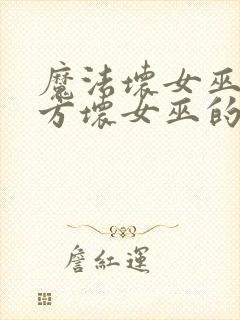 魔法壞女巫
方壞女巫的
詹紅運